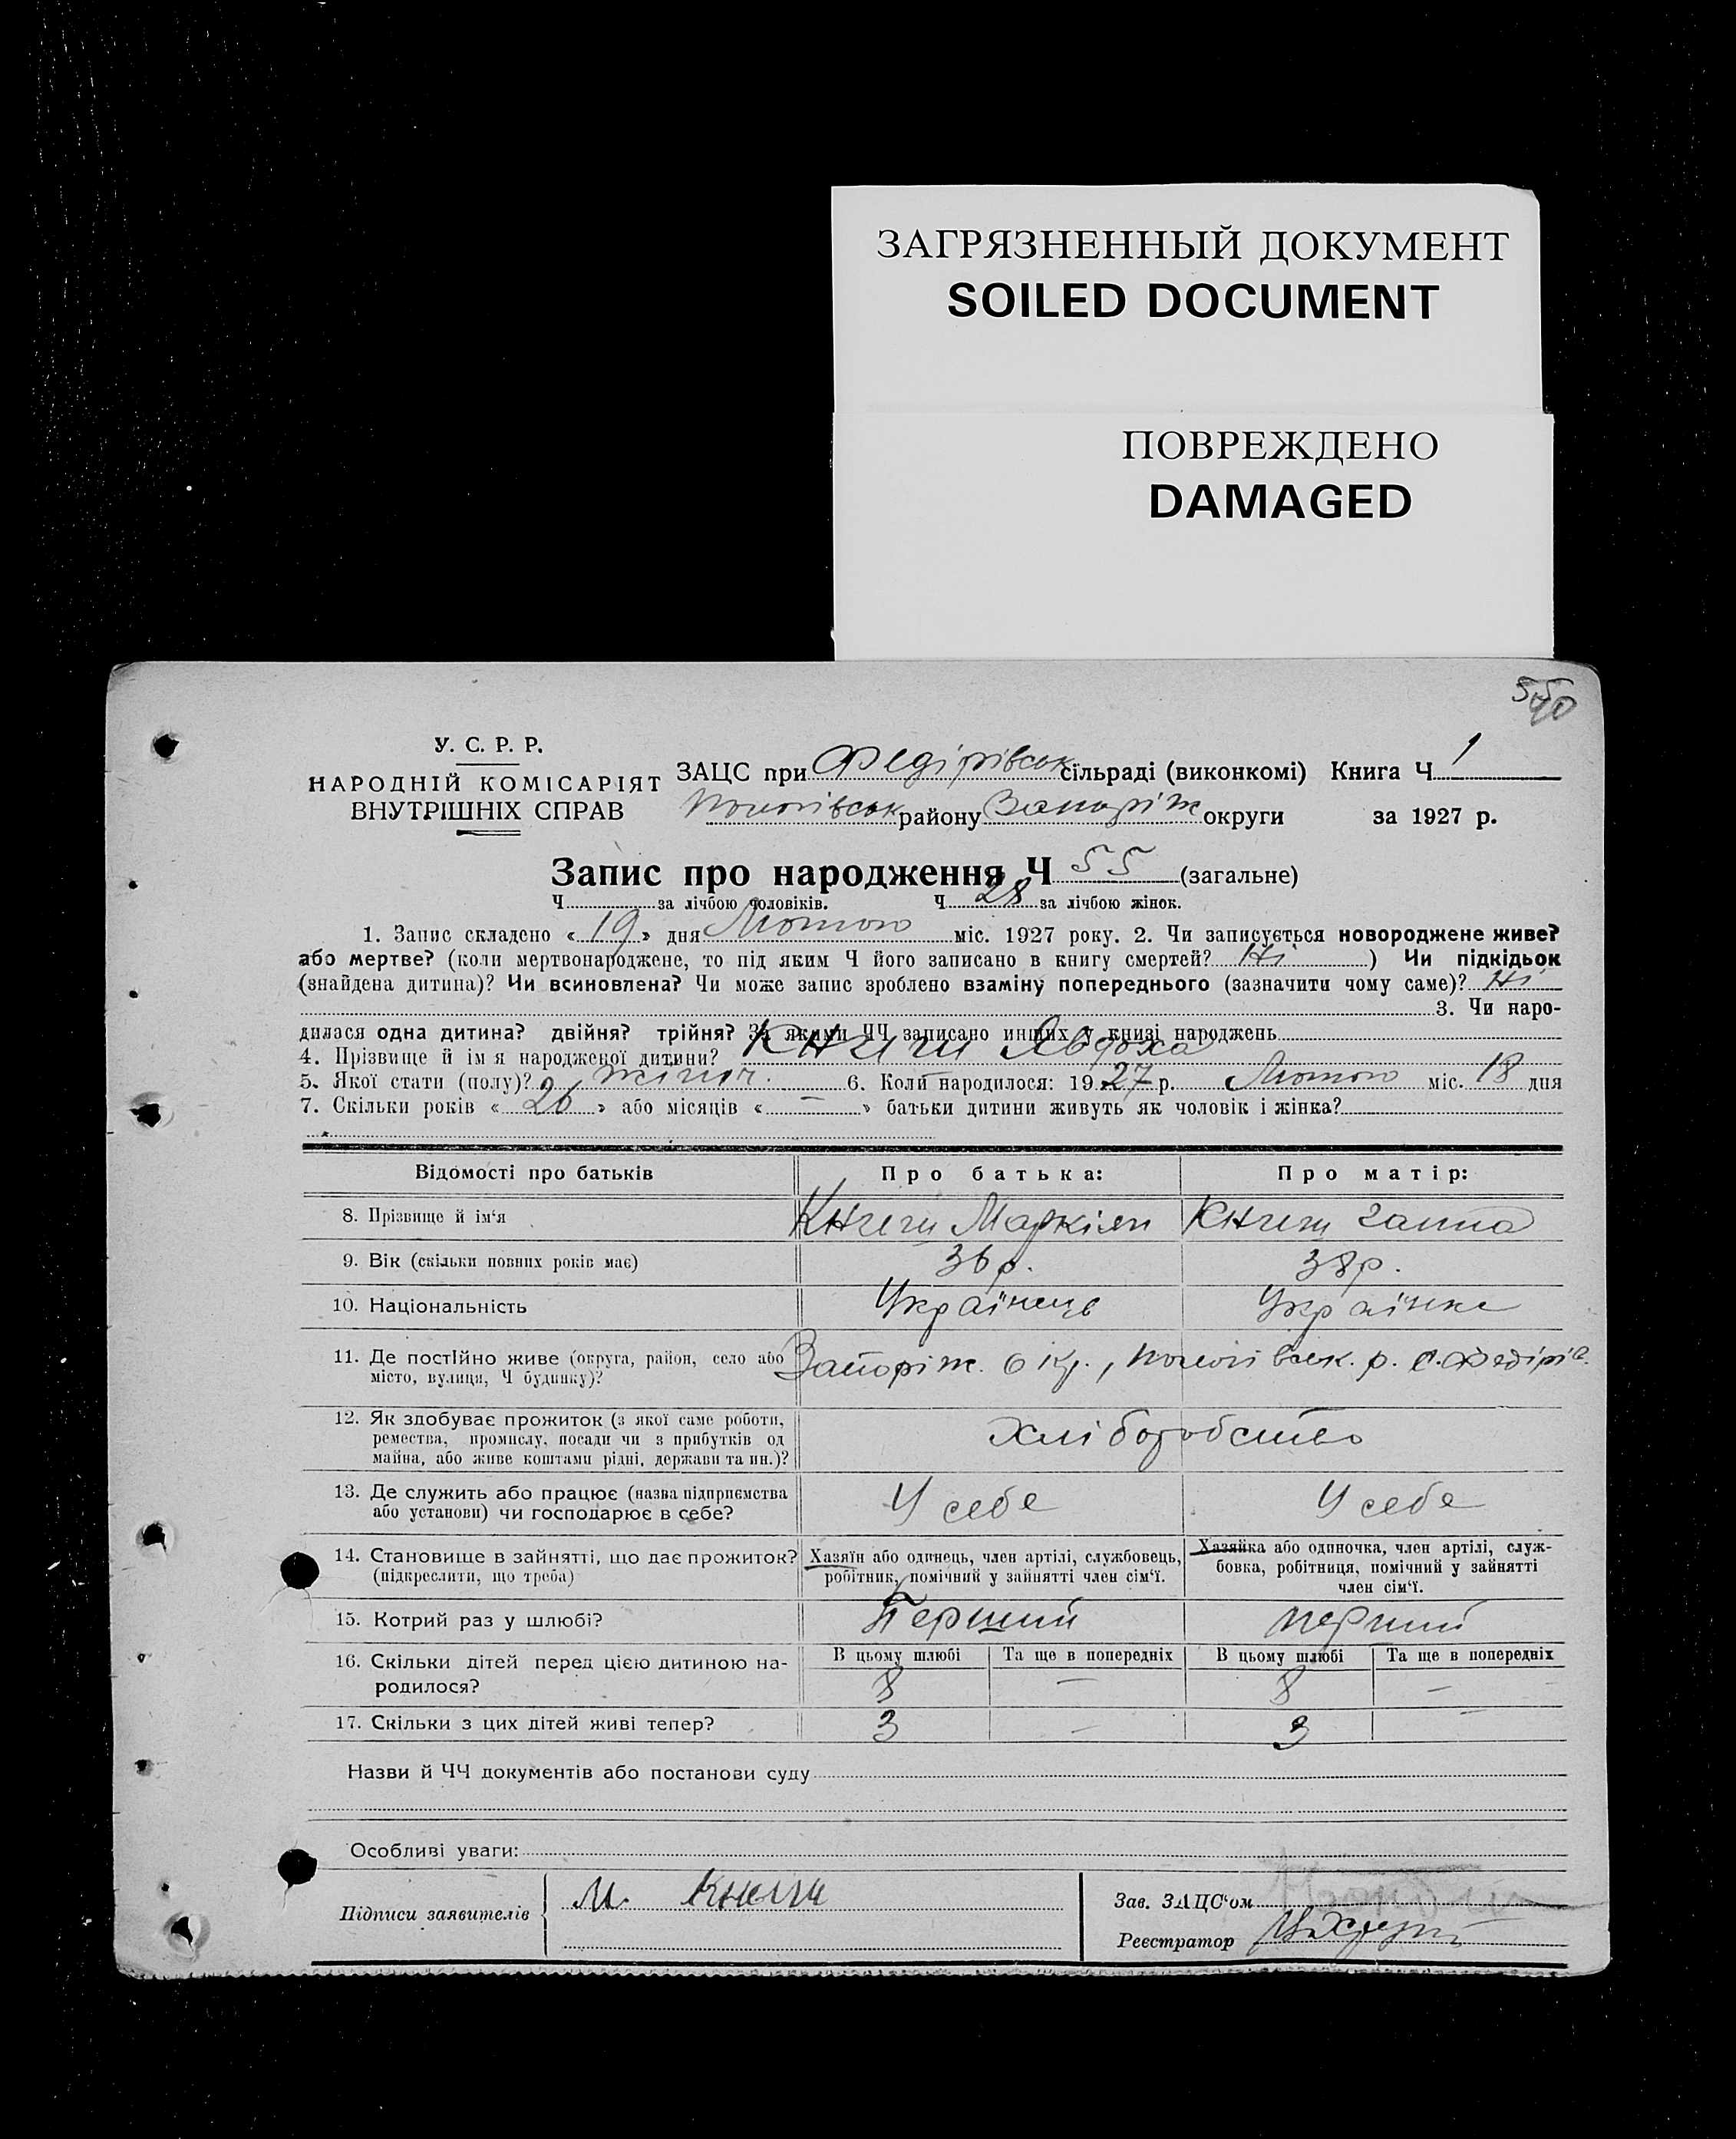 ЗАГРЯЗНЕННЫЙ ДОКУМЕНТ
SOILED DOCUMENT
ПОВРЕЖДЕНО
DAMAGED
У. С. Р. Р.
НАРОДНІЙ КОМІСАРІЯТ
ВНУТРІШНІХ СПРАВ
ЗАЦС при Федірівськ сільраді (виконкомі) Книга Ч 1
Пологівськ району Запоріж округи за 1927 р.
Запис про народження Ч 55 (загальне)
Ч за лічбою чоловіків. Ч 28 за лічбою жінок.
1. Запис складено « 19 » дня Лютого міс. 1927 року. 2. Чи записується новороджене живе?
або мертве? (коли мертвонароджене, то під яким Ч його записано в книгу смертей? Ні ) Чи підкідьок
(знайдена дитина)? Чи всиновлена? Чи може запис зроблено взаміну попереднього (зазначити чому саме)? Ні
3. Чи наро-
дилася одна дитина? двійня? трійня? За якими ЧЧ записано инших у книзі народжень
4. Прізвище й ім я народженої дитини? Книги Явдоха
5. Якої стати (полу)? жіноч. 6. Коли народилося: 1927 р. Лютого міс. 18 дня
7. Скільки років « 26 » або місяців « — » батьки дитини живуть як чоловік і жінка?
Відомості про батьків Про батька: Про матір:
8. Прізвище й ім'я Маркіян Ганна
9. Вік (скільки повних років має) 36 р. 38 р.
10. Національність Українець Українка
11. Де постійно живе (округа, район, село або
місто, вулиця, Ч будинку)? Запоріж. окр., Пологівськ. р. с. Федірів.
12. Як здобуває прожиток (з якої саме роботи,
ремества, промислу, посади чи з прибутків од
майна, або живе коштами рідні, держави та ин.)? Хліборобство
13. Де служить або працює (назва підприємства
або установи) чи господарює в себе? У себе У себе
14. Становище в зайнятті, що дає прожиток?
(підкреслити, що треба)
Хазяїн або одинець, член артілі, службовець,
робітник, помічний у зайнятті член сім'ї.
Хазяйка або одиночка, член артілі, служ-
бовка, робітниця, помічний у зайнятті
член сім'ї.
15. Котрий раз у шлюбі? Перший перший
В цьому шлюбі Та ще в попередніх В цьому шлюбі Та ще в попередніх
16. Скільки дітей перед цією дитиною на-
родилося? 8 — 8 —
17. Скільки з цих дітей живі тепер? 3 — 3 —
Назви й ЧЧ документів або постанови суду
Особливі уваги:
Підписи заявителів М.
Зав. ЗАЦС'ом
Реєстратор